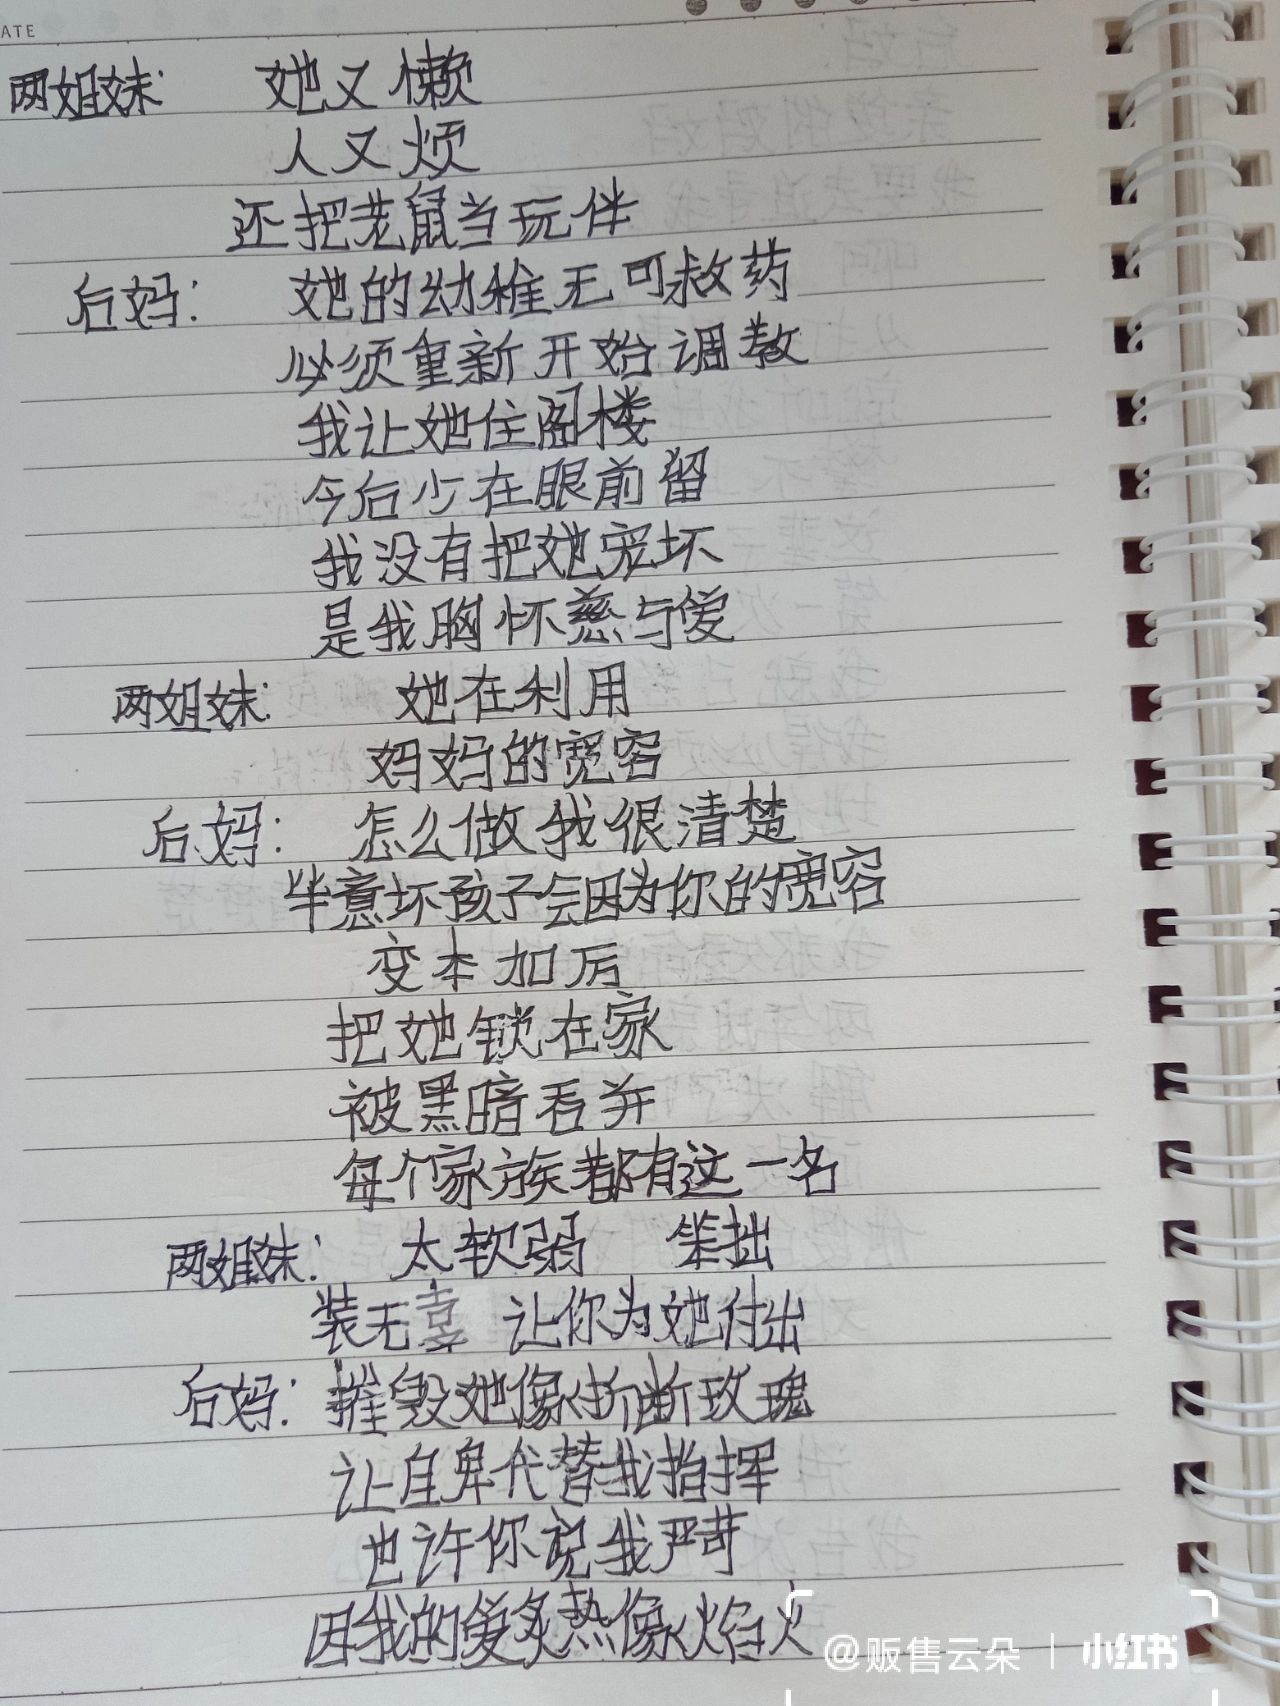 ATE
两姐妹: 她又懒
人又烦
还把老鼠当玩伴
后妈: 她的幼稚无可救药
必须重新开始调教
我让她住阁楼
今后少在眼前留
我没有把她宠坏
是我胸怀慈与爱
两姐妹: 她在利用
妈妈的宽容
后妈: 怎么做我很清楚
毕意坏孩子会因为你的宽容
变本加厉
把她锁在家
被黑暗吞并
每个家族都有这一名
两姐妹: 太软弱 笨拙
装无辜 让你为她付出
后妈: 摧毁她像折断玫瑰
让自卑代替我指挥
也许你说我严苛
因我的爱炙热像火焰火
@贩售云朵 | 小红书